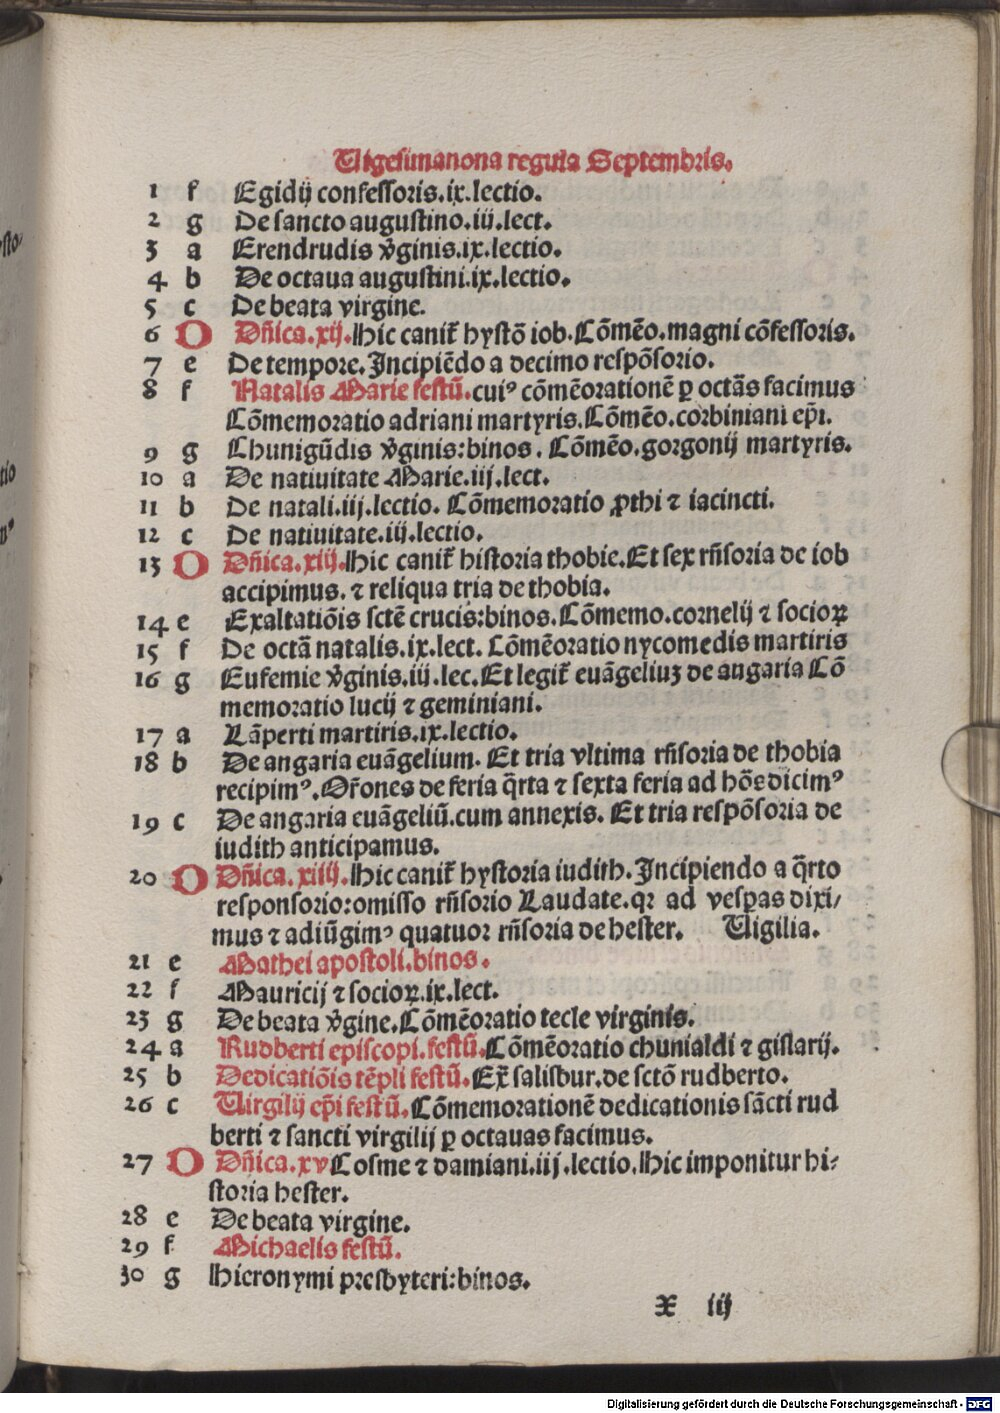 Uigesimanona regula Septembris.
1 f Egidij confessoris.ix.lectio.
2 g De sancto augustino.iij.lect.
3 a Erendrudis v̓ginis.ix.lectio.
4 b De octaua augustini.ix.lectio.
5 c De beata virgine.
6 D Dn̄ica.xij.Hic canit᷑ hystō iob.Cōmēo.magni cōfessoris.
7 e De tempore.Incipiēdo a decimo respōsorio.
8 f Natalis Marie festū.cuiꝰ cōmēorationē ꝑ octās facimus
Cōmemoratio adriani martyris.Cōmēo.corbiniani ep̄i.
9 g Chunigūdis v̓ginis:binos. Cōmēo.gorgonij martyris.
10 a De natiuitate Marie.iij.lect.
11 b De natali.iij.lectio. Cōmemoratio ꝓthi ⁊ iacincti.
12 c De natiuitate.iij.lectio.
13 D Dn̄ica.xiij.Hic canit᷑ historia thobie.Et sex rn̄soria de iob
accipimus. ⁊ reliqua tria de thobia.
14 e Exaltatiōis sctē crucis:binos.Cōmemo.cornelij ⁊ socioꝝ
15 f De octā natalis.ix.lect. Cōmēoratio nycomedis martiris
16 g Eufemie v̓ginis.iij.lec.Et legit᷑ euāgeliuʒ de angaria Cō
memoratio lucij ⁊ geminiani.
17 a Lāperti martiris.ix.lectio.
18 b De angaria euāgelium. Et tria vltima rn̄soria de thobia
recipimꝰ.Or̄ones de feria q̄rta ⁊ sexta feria ad hōꝫ dicimꝰ
19 c De angaria euāgeliū.cum annexis. Et tria respōsoria de
iudith anticipamus.
20 D Dn̄ica.xiiij.Hic canit᷑ hystoria iudith.Incipiendo a q̄rto
responsorio:omisso rn̄sorio Laudate.qꝛ ad vesꝑas dixi/
mus ⁊ adiūgimꝰ quatuor rn̄soria de hester. Uigilia.
21 e Mathei apostoli.binos.
22 f Mauricij ⁊ socioꝝ.ix.lect.
23 g De beata v̓gine.Cōmēoratio tecle virginis.
24 a Rudberti episcopi.festū.Cōmēoratio chunialdi ⁊ gislarij.
25 b Dedicatiōis tēpli festū.Ex̄ salisbur.de sctō rudberto.
26 c Uirgilij ep̄i festū.Cōmemorationē dedicationis sācti rud
berti ⁊ sancti virgilij ꝑ octauas facimus.
27 D Dn̄ica.xv Cosme ⁊ damiani.iij.lectio.Hic imponitur hi-
storia hester.
28 e De beata virgine.
29 f Michaelis festū.
30 g Hieronymi presbyteri:binos.
x iij
Digitalisierung gefördert durch die Deutsche Forschungsgemeinschaft - DFG